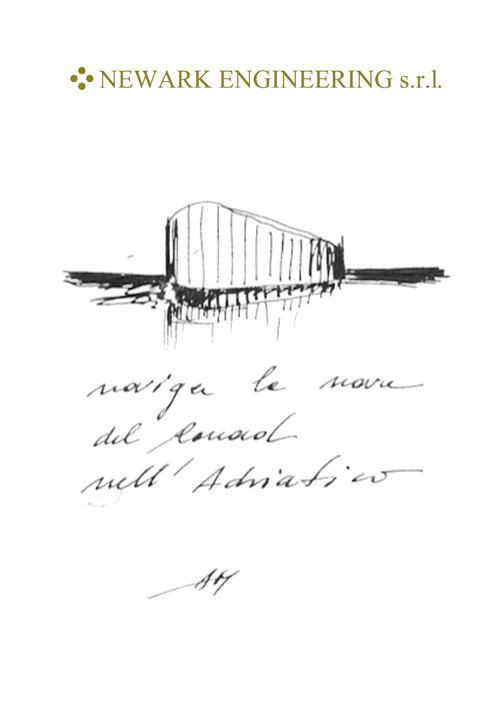 NEWARK ENGINEERING s.r.l.
naviga la nave
del
nell' Adriatico
AM